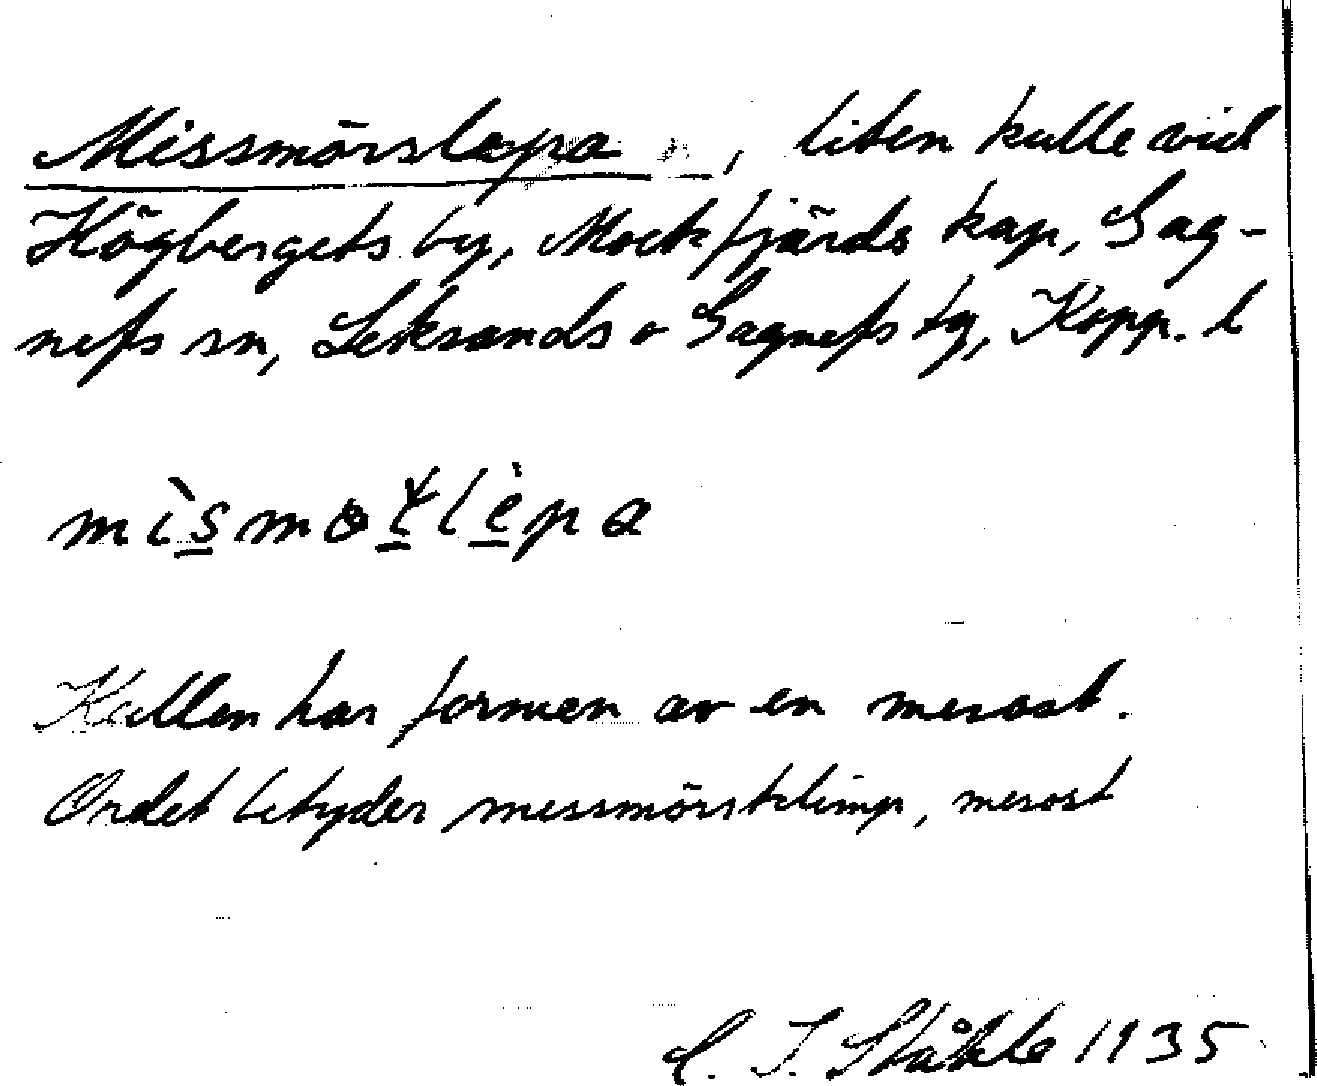 Missmörslepa, liten kulle vid
Högbergets by, Mockfjärds kap, Gag-
nefs sn, Leksands o Gagnefs tg, Kopp. l
mìsmoṭlèpa
Kullen har formen av en mesost.
Ordet betyder messmörsklimp, mesost
C. I. Ståhle 1935